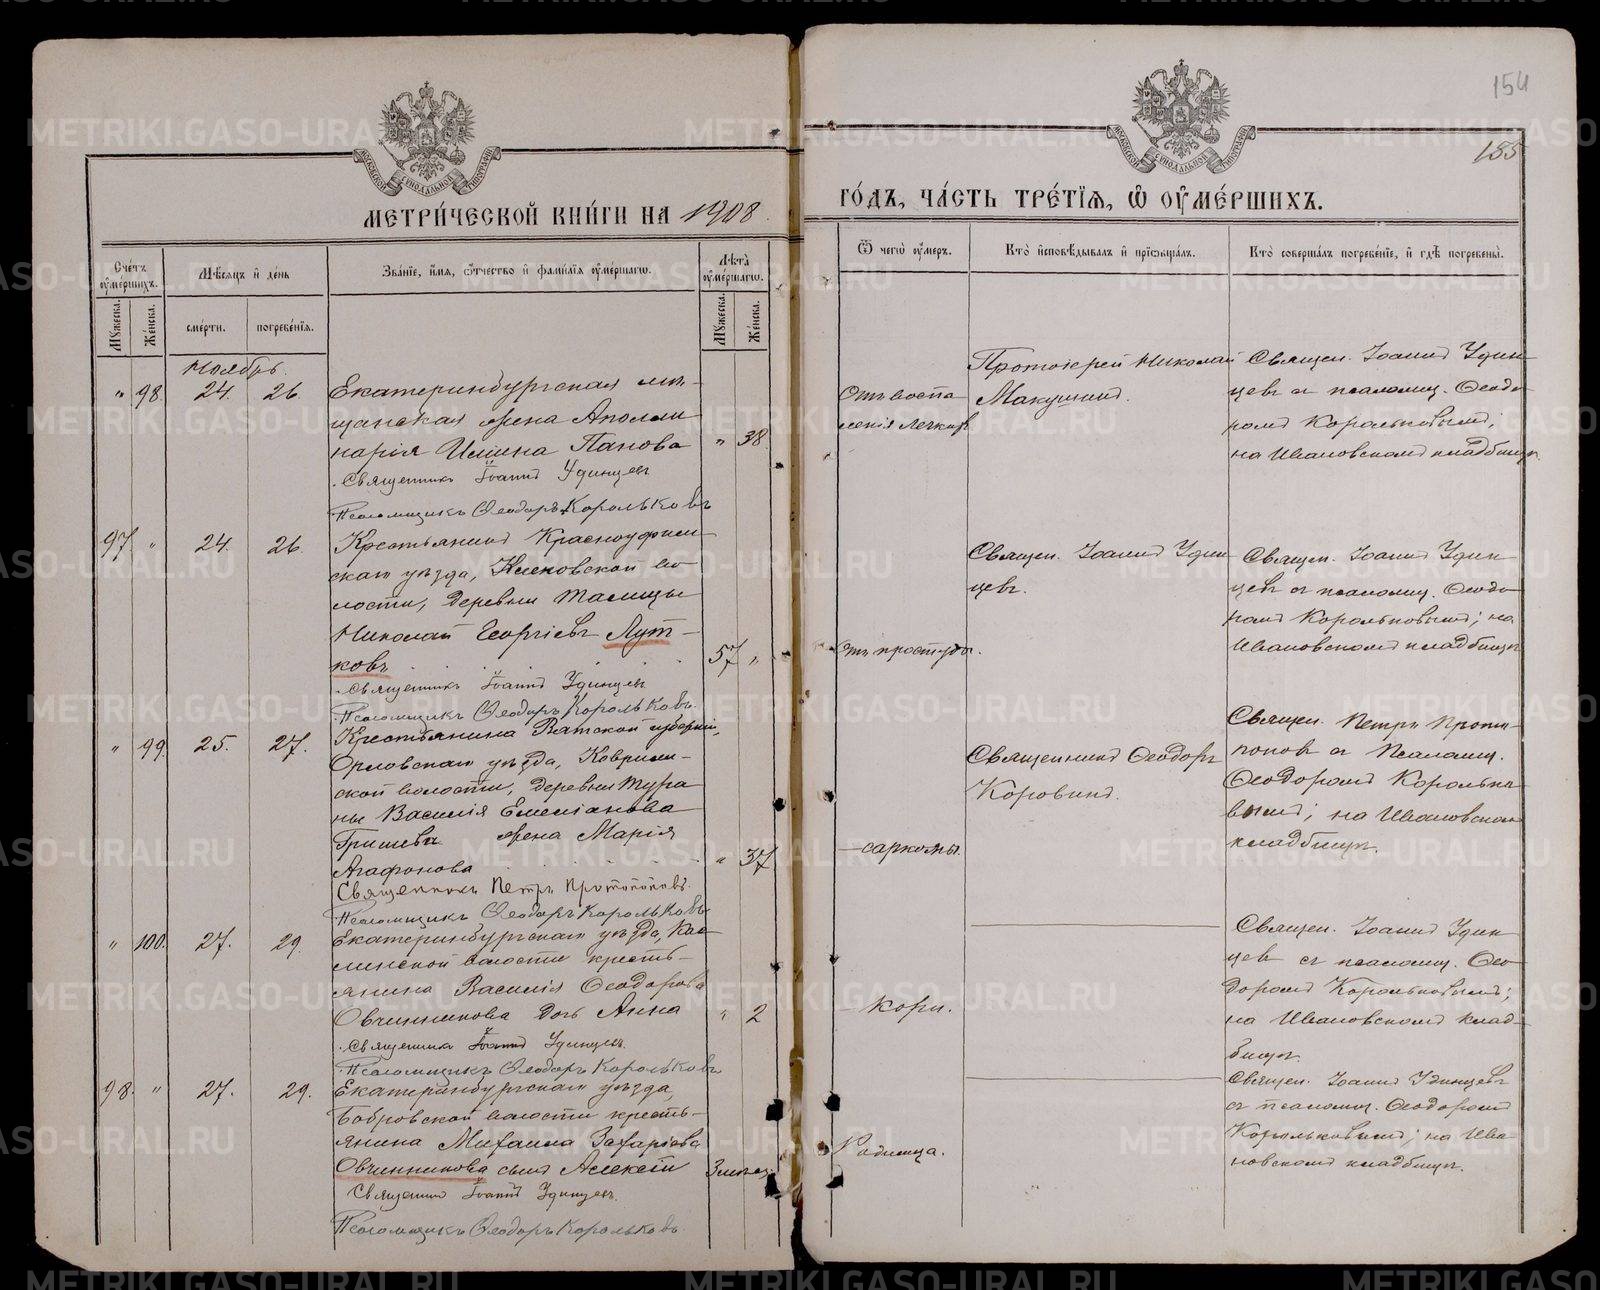 154
155
МЕТРИ́ЧЕСКОЙ КНИ́ГИ НА 1908
ГО́ДЪ, ЧА́СТЬ ТРЕ́ТІѦ, Ѡ҆ ОУ҆МЕ́РШИХЪ.
Сче́тъ оу҆ме́ршихъ.
Мѣ́сяцъ и҆ де́нь
Зва́нїе, и҆́мѧ, ѻ҆́тчество и҆ фами́лїѧ оу҆ме́ршагѡ.
Лѣ́та оу҆ме́ршагѡ.
Ѿ чегѡ̀ оу҆́меръ.
Кто̀ и҆сповѣ́дывалъ и҆ прїѡбща́лъ.
Кто̀ соверша́лъ погребе́нїе, и҆ гдѣ̀ погребены̀.
Му́жеска. Же́нска.
сме́рти. погребе́нїѧ.
Му́жеска. Же́нска.
Ноябрь.
" 98. 24. 26.
Екатеринбургская мѣ-
щанская жена Аполли
нарія Ильина Панова
" 38
Священникъ Іоаннъ Удинцевъ
Псаломщикъ Ѳеодоръ Корольковъ
Отъ воспа
ленія легкихъ
Протоіерей Николай
Макушинъ.
Священ. Іоаннъ Удин
цевъ съ псаломщ. Ѳеодо
ромъ Корольковымъ;
на Ивановскомъ кладбищѣ.
97 " 24. 26.
Крестьянинъ Красноуфим
скаго уѣзда, Кленовской во
лости, деревни Талицы
Николай Георгіевъ Лут-
ковъ
57 "
Священникъ Іоаннъ Удинцевъ
Псаломщикъ Ѳеодоръ Корольковъ.
Отъ простуды.
Священ. Іоаннъ Удин
цевъ.
Священ. Іоаннъ Удин
цевъ съ псаломщ. Ѳеодо
ромъ Корольковымъ; на
Ивановскомъ кладбищѣ
" 99. 25. 27.
Крестьянина Вятской губерніи,
Орловскаго уѣзда,
ской волости, деревни Тура
ны Василія Емеліанова
Гришева жена Марія
Агафонова
" 37
Священникъ Петръ Протопоповъ.
Псаломщикъ Ѳеодоръ Корольковъ
—саркомы.
Священникъ Ѳеодоръ
Коровинъ.
Священ. Петръ Прото-
поповъ съ Псаломщ.
Ѳеодоромъ Королько
вымъ; на Ивановском
кладбищѣ.
" 100. 27. 29.
Екатеринбургскаго уѣзда, Кас
линской волости кресть-
янина Василія Ѳеодорова
Овчинникова дочь Анна
" 2
Священник Іоаннъ Удинцевъ.
Псаломщикъ Ѳеодоръ Корольковъ
— кори.
Священ. Іоаннъ Удин
цевъ съ псаломщ. Ѳео
доромъ Корольковымъ;
на Ивановскомъ клад-
бищѣ.
98. " 27. 29.
Екатеринбургскаго уѣзда,
Бобровской волости кресть-
янина Михаила Захаріева
Овчинникова сынъ Алексѣй
3 мѣсяц.
Священник Іоаннъ Удинцевъ.
Псаломщикъ Ѳеодоръ Корольковъ.
Родимца.
Священ. Іоаннъ Удинцевъ
съ псаломщ. Ѳеодоромъ
Корольковымъ; на Ива
новскомъ кладбищѣ.